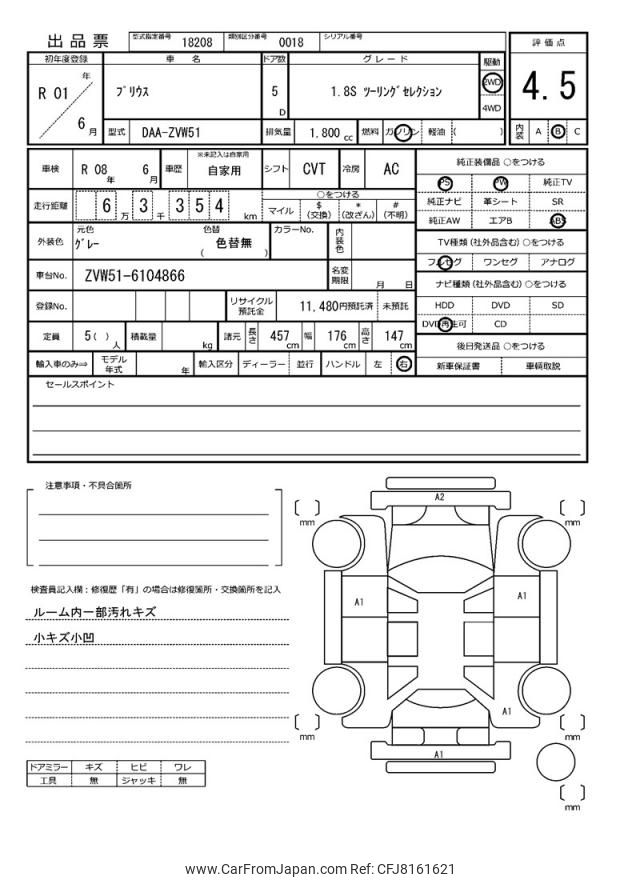 出品票 型式指定番号 18208 類別区分番号 0018 シリアル番号
評価点
4.5
内装 A B C
初年度登録 車名 ドア数 グレード 駆動
R 01 年 6 月
プリウス 5 D 1.8S ツーリングセレクション 2WD 4WD
型式 DAA-ZVW51 排気量 1,800 cc 燃料 ガソリン 軽油 ( )
車検 R 08 年 6 月 車歴 ※未記入は自家用 自家用 シフト CVT 冷房 AC
走行距離 6 万 3 千 3 5 4 km
○をつける
マイル $ (交換) * (改ざん) # (不明)
外装色 元色 グレー 色替 ( 色替無 ) カラーNo. 内装色
車台No. ZVW51-6104866 名変期限 月 日
登録No. リサイクル預託金 11,480円預託済 未預託
定員 5 ( ) 人 積載量 kg 諸元 長さ 457 cm 幅 176 cm 高さ 147 cm
輸入車のみ⇒ モデル年式 年 輸入区分 ディーラー 並行 ハンドル 左 右
純正装備品 ○をつける
PS PW 純正TV
純正ナビ 革シート SR
純正AW エアB ABS
TV種類 (社外品含む) ○をつける
フルセグ ワンセグ アナログ
ナビ種類 (社外品含む) ○をつける
HDD DVD SD
DVD再生可 CD
後日発送品 ○をつける
新車保証書 車輌取説
セールスポイント
注意事項・不具合箇所
検査員記入欄：修復歴「有」の場合は修復箇所・交換箇所を記入
ルーム内一部汚れキズ
小キズ小凹
ドアミラー キズ ヒビ ワレ
工具 無 ジャッキ 無
A2
mm mm
A1 A1
A1
mm mm
A1
mm
www.CarFromJapan.com Ref: CFJ8161621